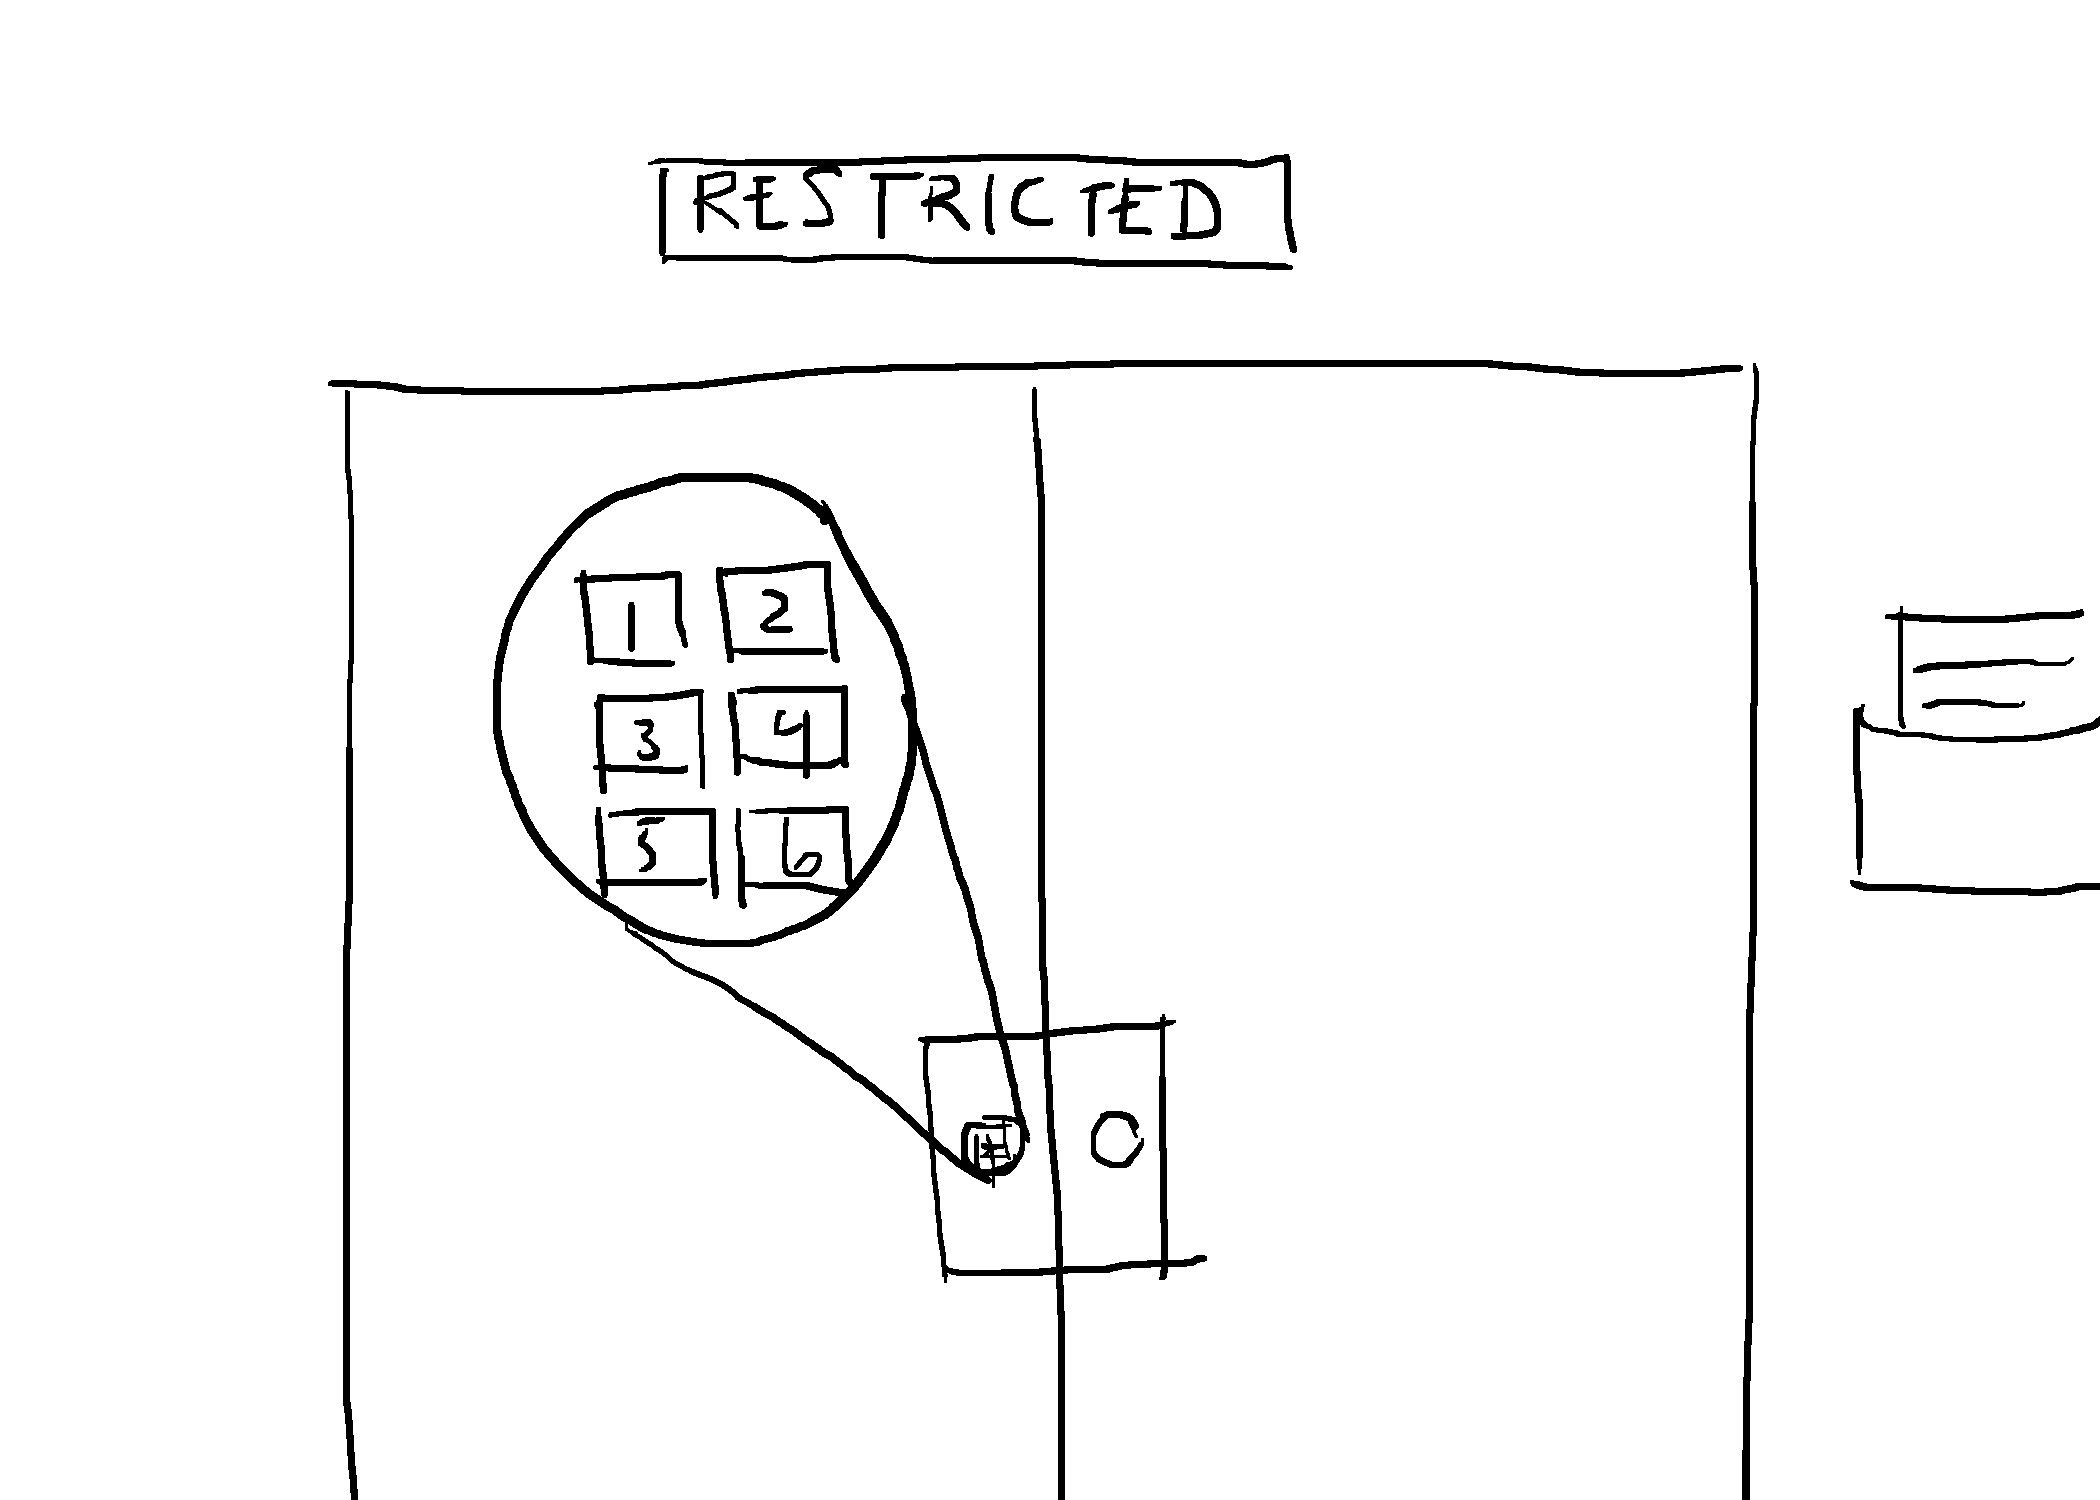 RESTRICTED
1 2
3 4
5 6